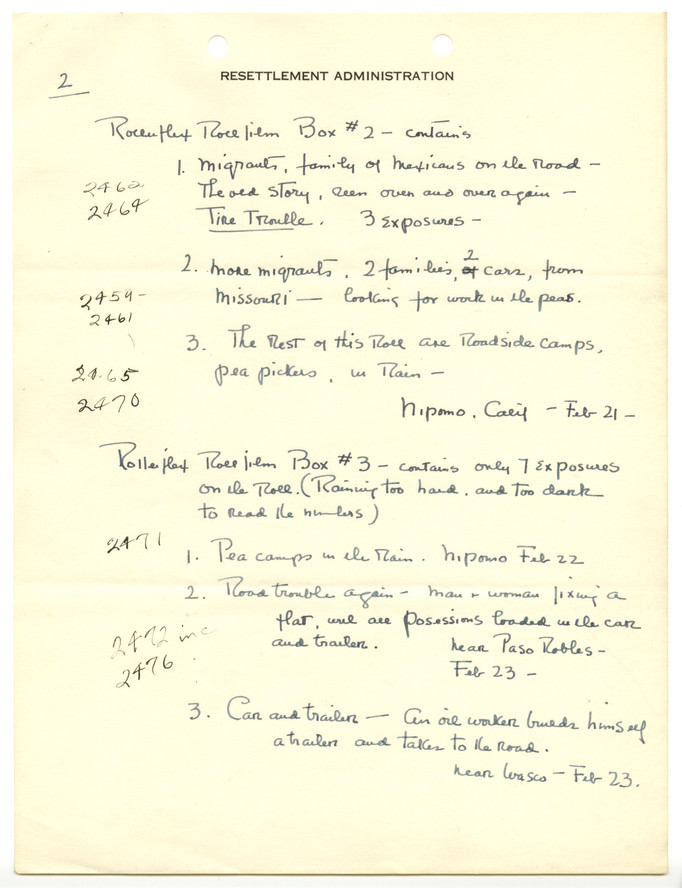 RESETTLEMENT ADMINISTRATION
2
Rolleiflex Roll film Box #2 - contains
1. Migrants, family of Mexicans on the Road -
2462
The old story, seen over and over again -
2464
Tire Trouble. 3 Exposures -
2. More migrants, 2 families, 2 cars, from
2459-
Missouri — looking for work in the peas.
2461
3. The Rest of this Roll are Roadside camps,
2465
pea pickers, in Rain -
2470
Nipomo, Calif - Feb 21 -
Rolleiflex Roll film Box #3 - contains only 7 Exposures
on the Roll. (Raining too hard. and too dark
to read the numbers)
2471
1. Pea camps in the Rain. Nipomo Feb 22
2. Road trouble again - man + woman fixing a
flat, with all posessions loaded in the car
2472 inc
and trailer. near Paso Robles -
2476
Feb 23 -
3. Car and trailer — An oil worker builds himself
a trailer and takes to the Road.
near Wasco - Feb 23.